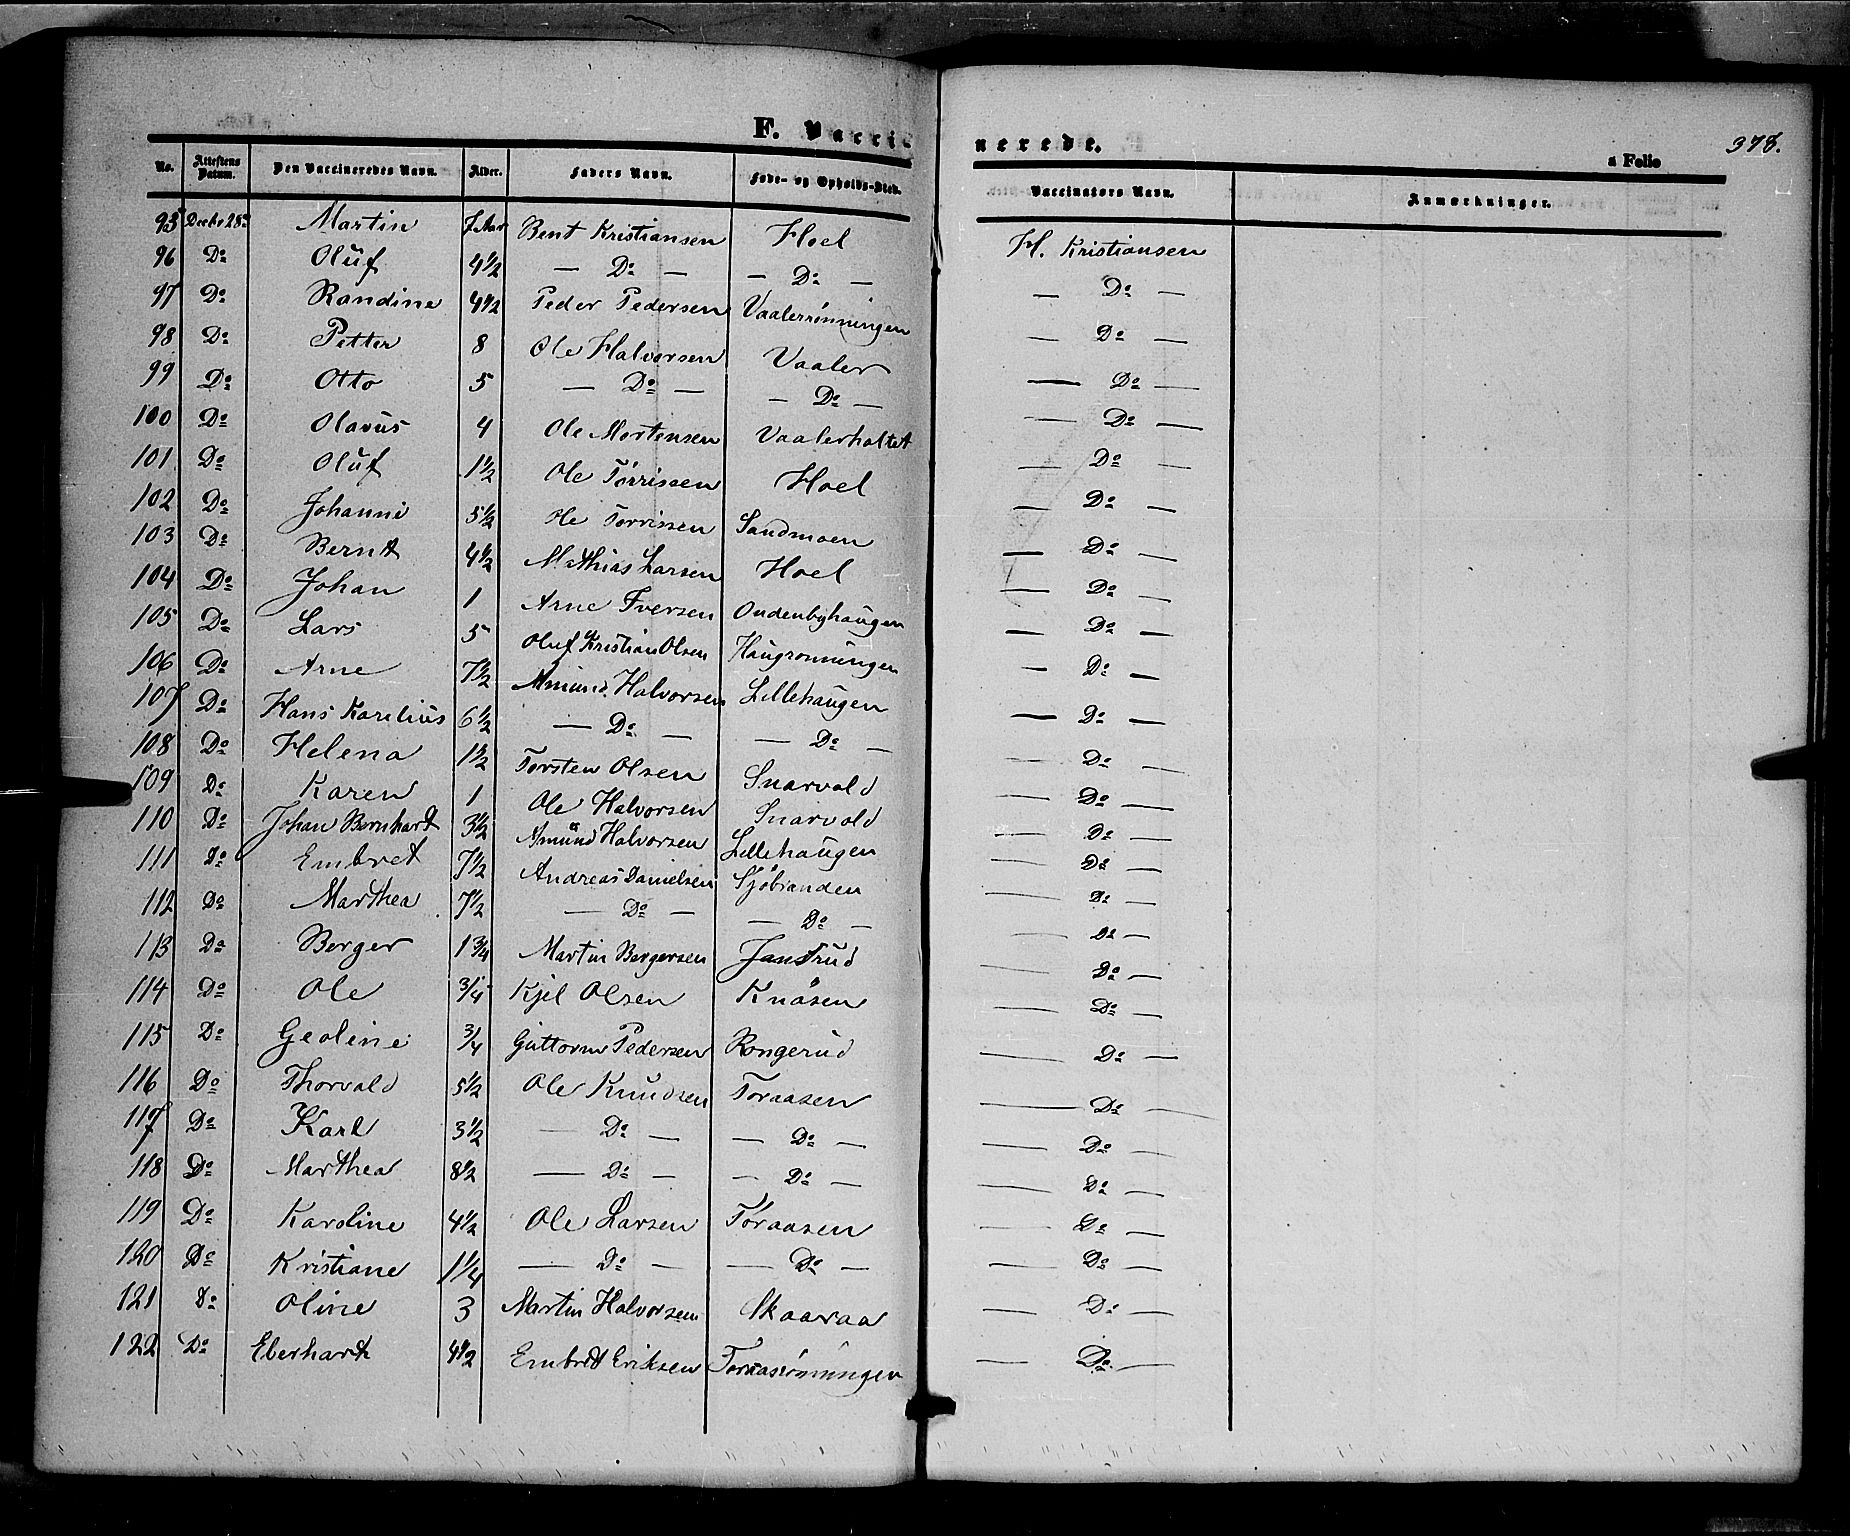 F. Vacci-
nerede.
a Folio 378.
No. Attestens Datum. Den Vaccineredes Navn. Alder. Faders Navn. Føde- og Opholds-Sted. Vaccinators Navn. Anmærkninger.
95 Decbr 28de Martin 7 Aar Bent Kristiansen Hoel H. Kristiansen
96 Do Oluf 4 1/2 — Do — — Do — — Do —
97 Do Randine 4 1/2 Peder Pedersen Vaalerrønningen — Do —
98 Do Petter 8 Ole Halvorsen Vaaler — Do —
99 Do Otto 5 — Do — — Do — — Do —
100 Do Olavus 4 Ole Mortensen Vaalerholtet — Do —
101 Do Oluf 1 1/2 Ole Tørrissen Hoel — Do —
102 Do Johanne 5 1/2 Ole Tørrissen Sandmoen — Do —
103 Do Bernt 4 1/2 Mathias Larsen Hoel — Do —
104 Do Johan 1 Arne Iversen Oudenbyhaugen — Do —
105 Do Lars 5 Oluf Kristian Olsen Haugrønningen — Do —
106 Do Arne 7 1/2 Amund Halvorsen Lillehaugen — Do —
107 Do Hans Karelius 6 1/2 — Do — — Do — — Do —
108 Do Helena 1 1/2 Torsten Olsen Snarvold — Do —
109 Do Karen 1 Ole Halvorsen Snarvold — Do —
110 Do Johan Bernhart 3 1/2 Amünd Halvorsen Lillehaugen — Do —
111 Do Embret 7 1/2 Andreas Danielsen Sjøbranden — Do —
112 Do Marthea 7 1/2 — Do — — Do — — Do —
113 Do Berger 1 3/4 Martin Bergersen Jansrud — Do —
114 Do Ole 3/4 Kjel Olsen Knåsen — Do —
115 Do Geoline 3/4 Guttorm Pedersen Rongerud — Do —
116 Do Thorvald 5 1/2 Ole Knudsen Toraasen — Do —
117 Do Karl 3 1/2 — Do — — Do — — Do —
118 Do Marthea 8 1/2 — Do — — Do — — Do —
119 Do Karoline 4 1/2 Ole Larsen Toraasen — Do —
120 Do Kristiane 1 1/4 — Do — — Do — — Do —
121 Do Oline 3 Martin Halvorsen Skaaraa — Do —
122 Do Eberhart 4 1/2 Embret Eriksen Toraasrønningen — Do —